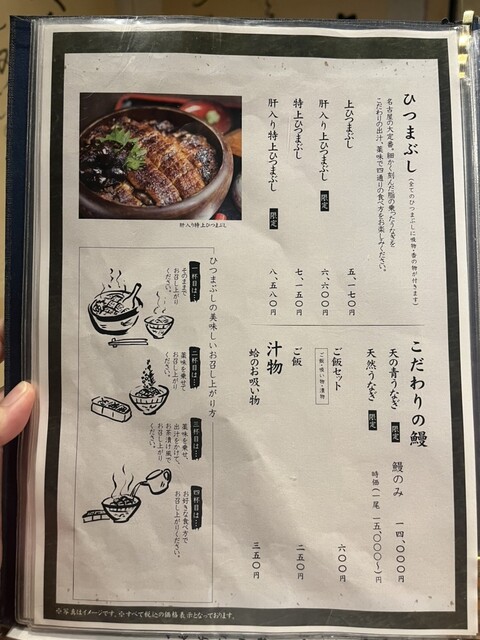 ひつまぶし(全てのひつまぶしに吸物・香の物が付きます)
名古屋の大定番。細かく刻んだ脂の乗ったうなぎを
こだわりの出汁、薬味で四通りの食べ方をお楽しみください。
上ひつまぶし 五、一七〇円
肝入り上ひつまぶし 限定 六、六〇〇円
特上ひつまぶし 七、一五〇円
肝入り特上ひつまぶし 限定 八、五八〇円
肝入り特上ひつまぶし
こだわりの鰻
天の青うなぎ 限定 鰻のみ 一四、〇〇〇円
天然うなぎ 限定 時価(一尾 一五、〇〇〇〜)円
ご飯セット 六〇〇円
ご飯・吸い物・漬物
ご飯 二五〇円
汁物
蛤のお吸い物 三五〇円
ひつまぶしの美味しいお召し上がり方
一杯目は…
そのままで
お召し上がり
ください。
二杯目は…
薬味を乗せて
お召し上がり
ください。
三杯目は…
薬味を乗せ、
出汁をかけて、
お茶漬け風で
お召し上がり
ください。
四杯目は…
お好きな食べ方で
お召し上がりください。
※写真はイメージです。※すべて税込の価格表示となっております。